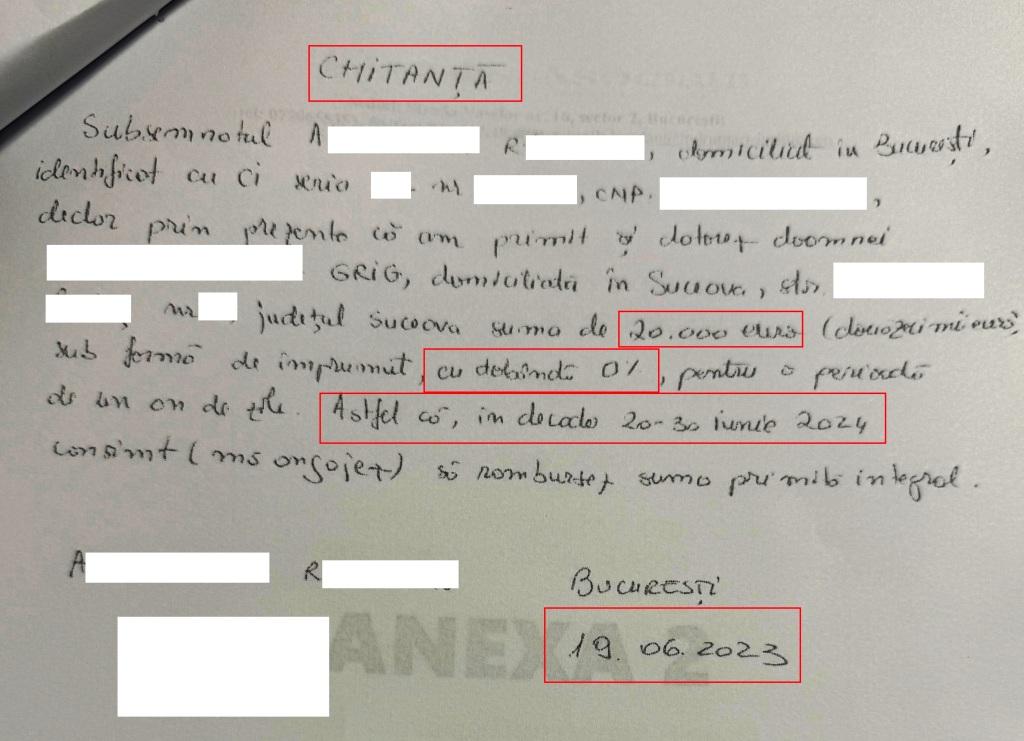 CHITANȚĂ
Subsemnatul A R, domiciliat în București,
identificat cu CI seria nr , CNP. ,
declar prin prezenta că am primit și datorez doamnei
GRIG, domiciliată în Suceava, str.
, nr județul Suceava suma de 20.000 euro (douăzeci mii euro,
sub formă de împrumut, cu dobândă 0%, pentru o perioadă
de un an de zile. Astfel că, în decada 20-30 iunie 2024
consimt (mă angajez) să rambursez suma primită integral.
A R
BUCUREȘTI
19.06.2023
ANEXA 2